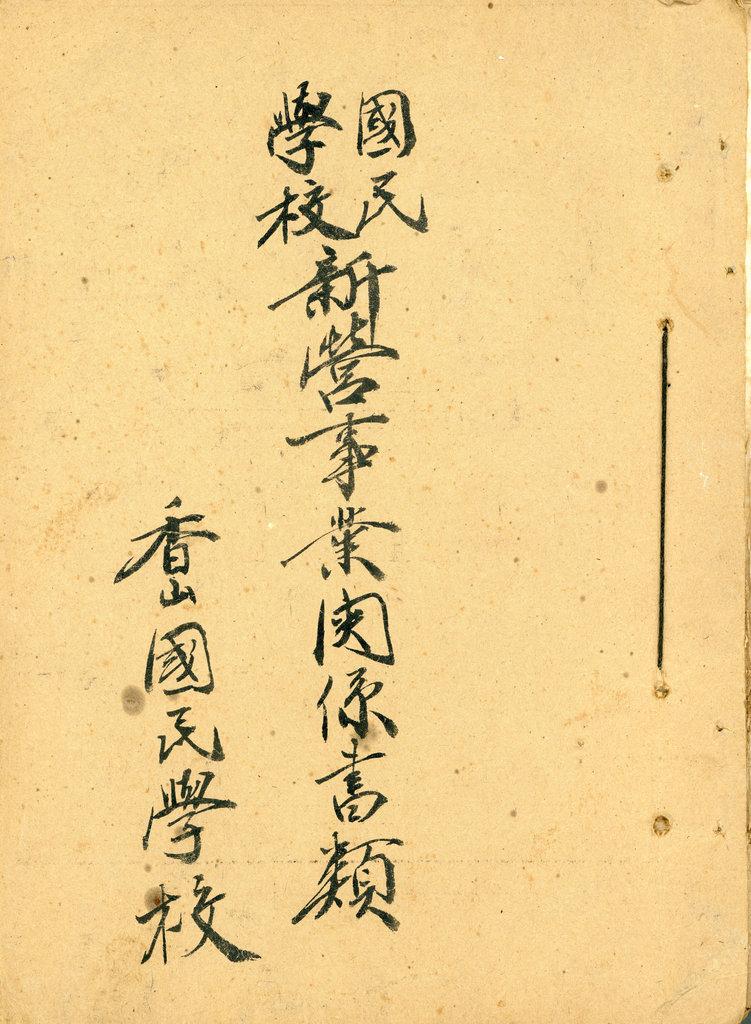 國民學校新營事業関係書類
香山國民學校